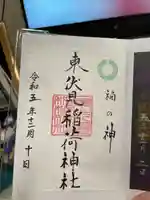 福の神
東伏見稲荷神社
令和五年十二月十日